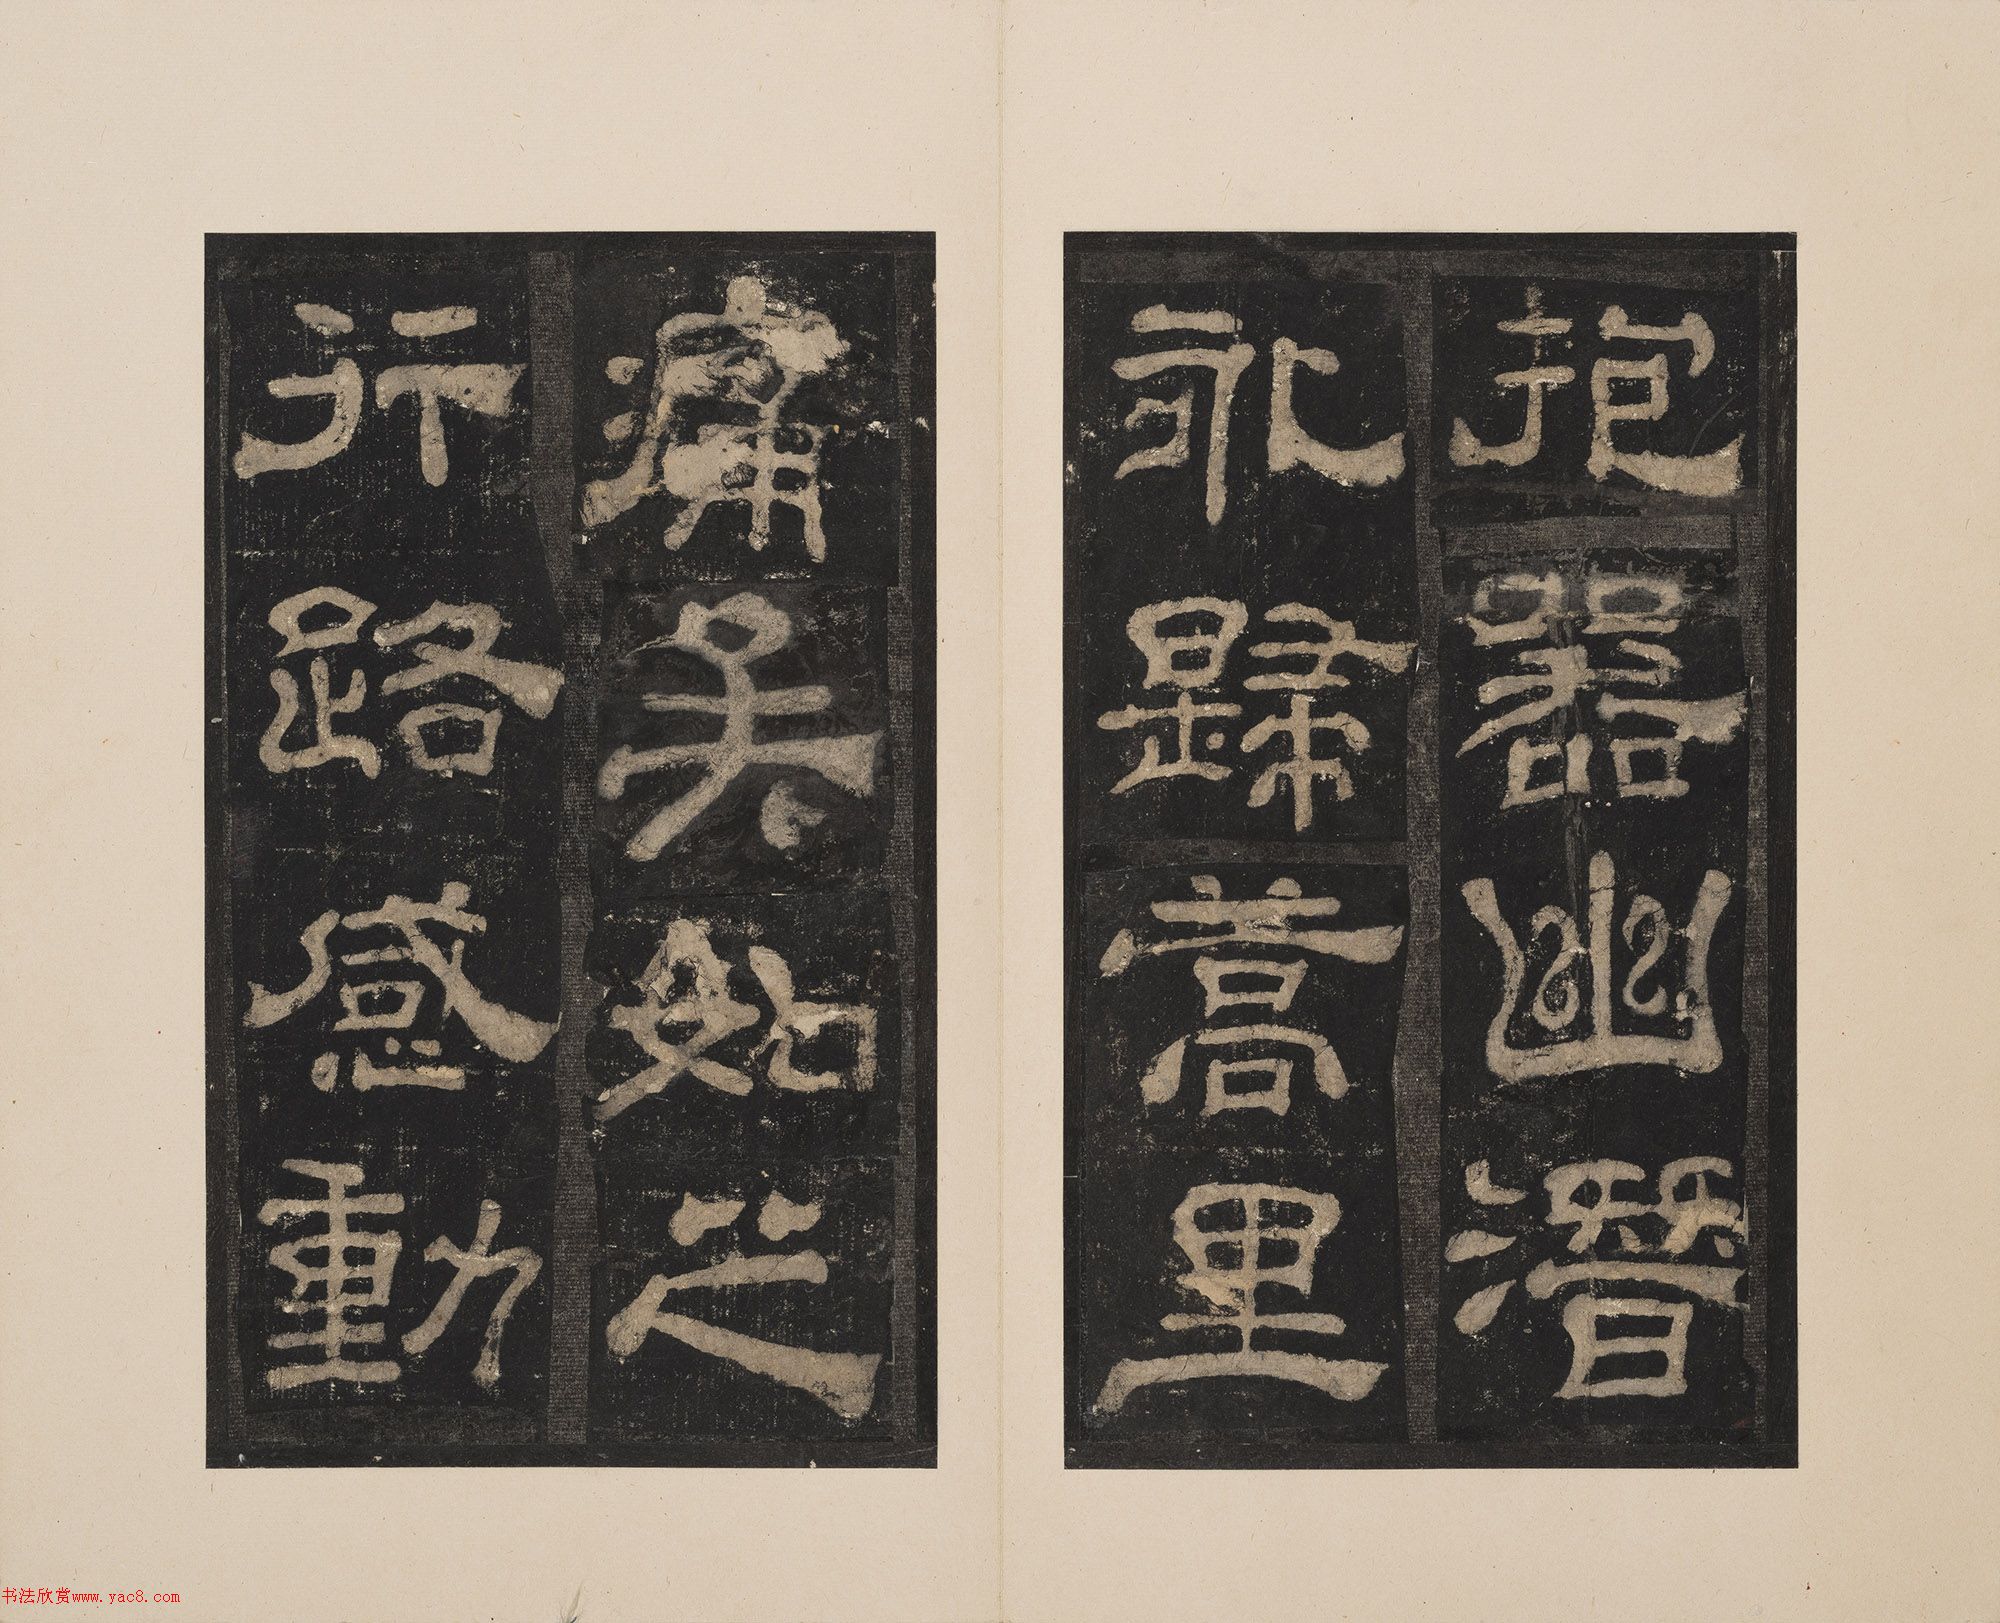 抱器幽潛
永歸蒿里
痛矣如之
行路感動
书法欣赏www.yac8.com